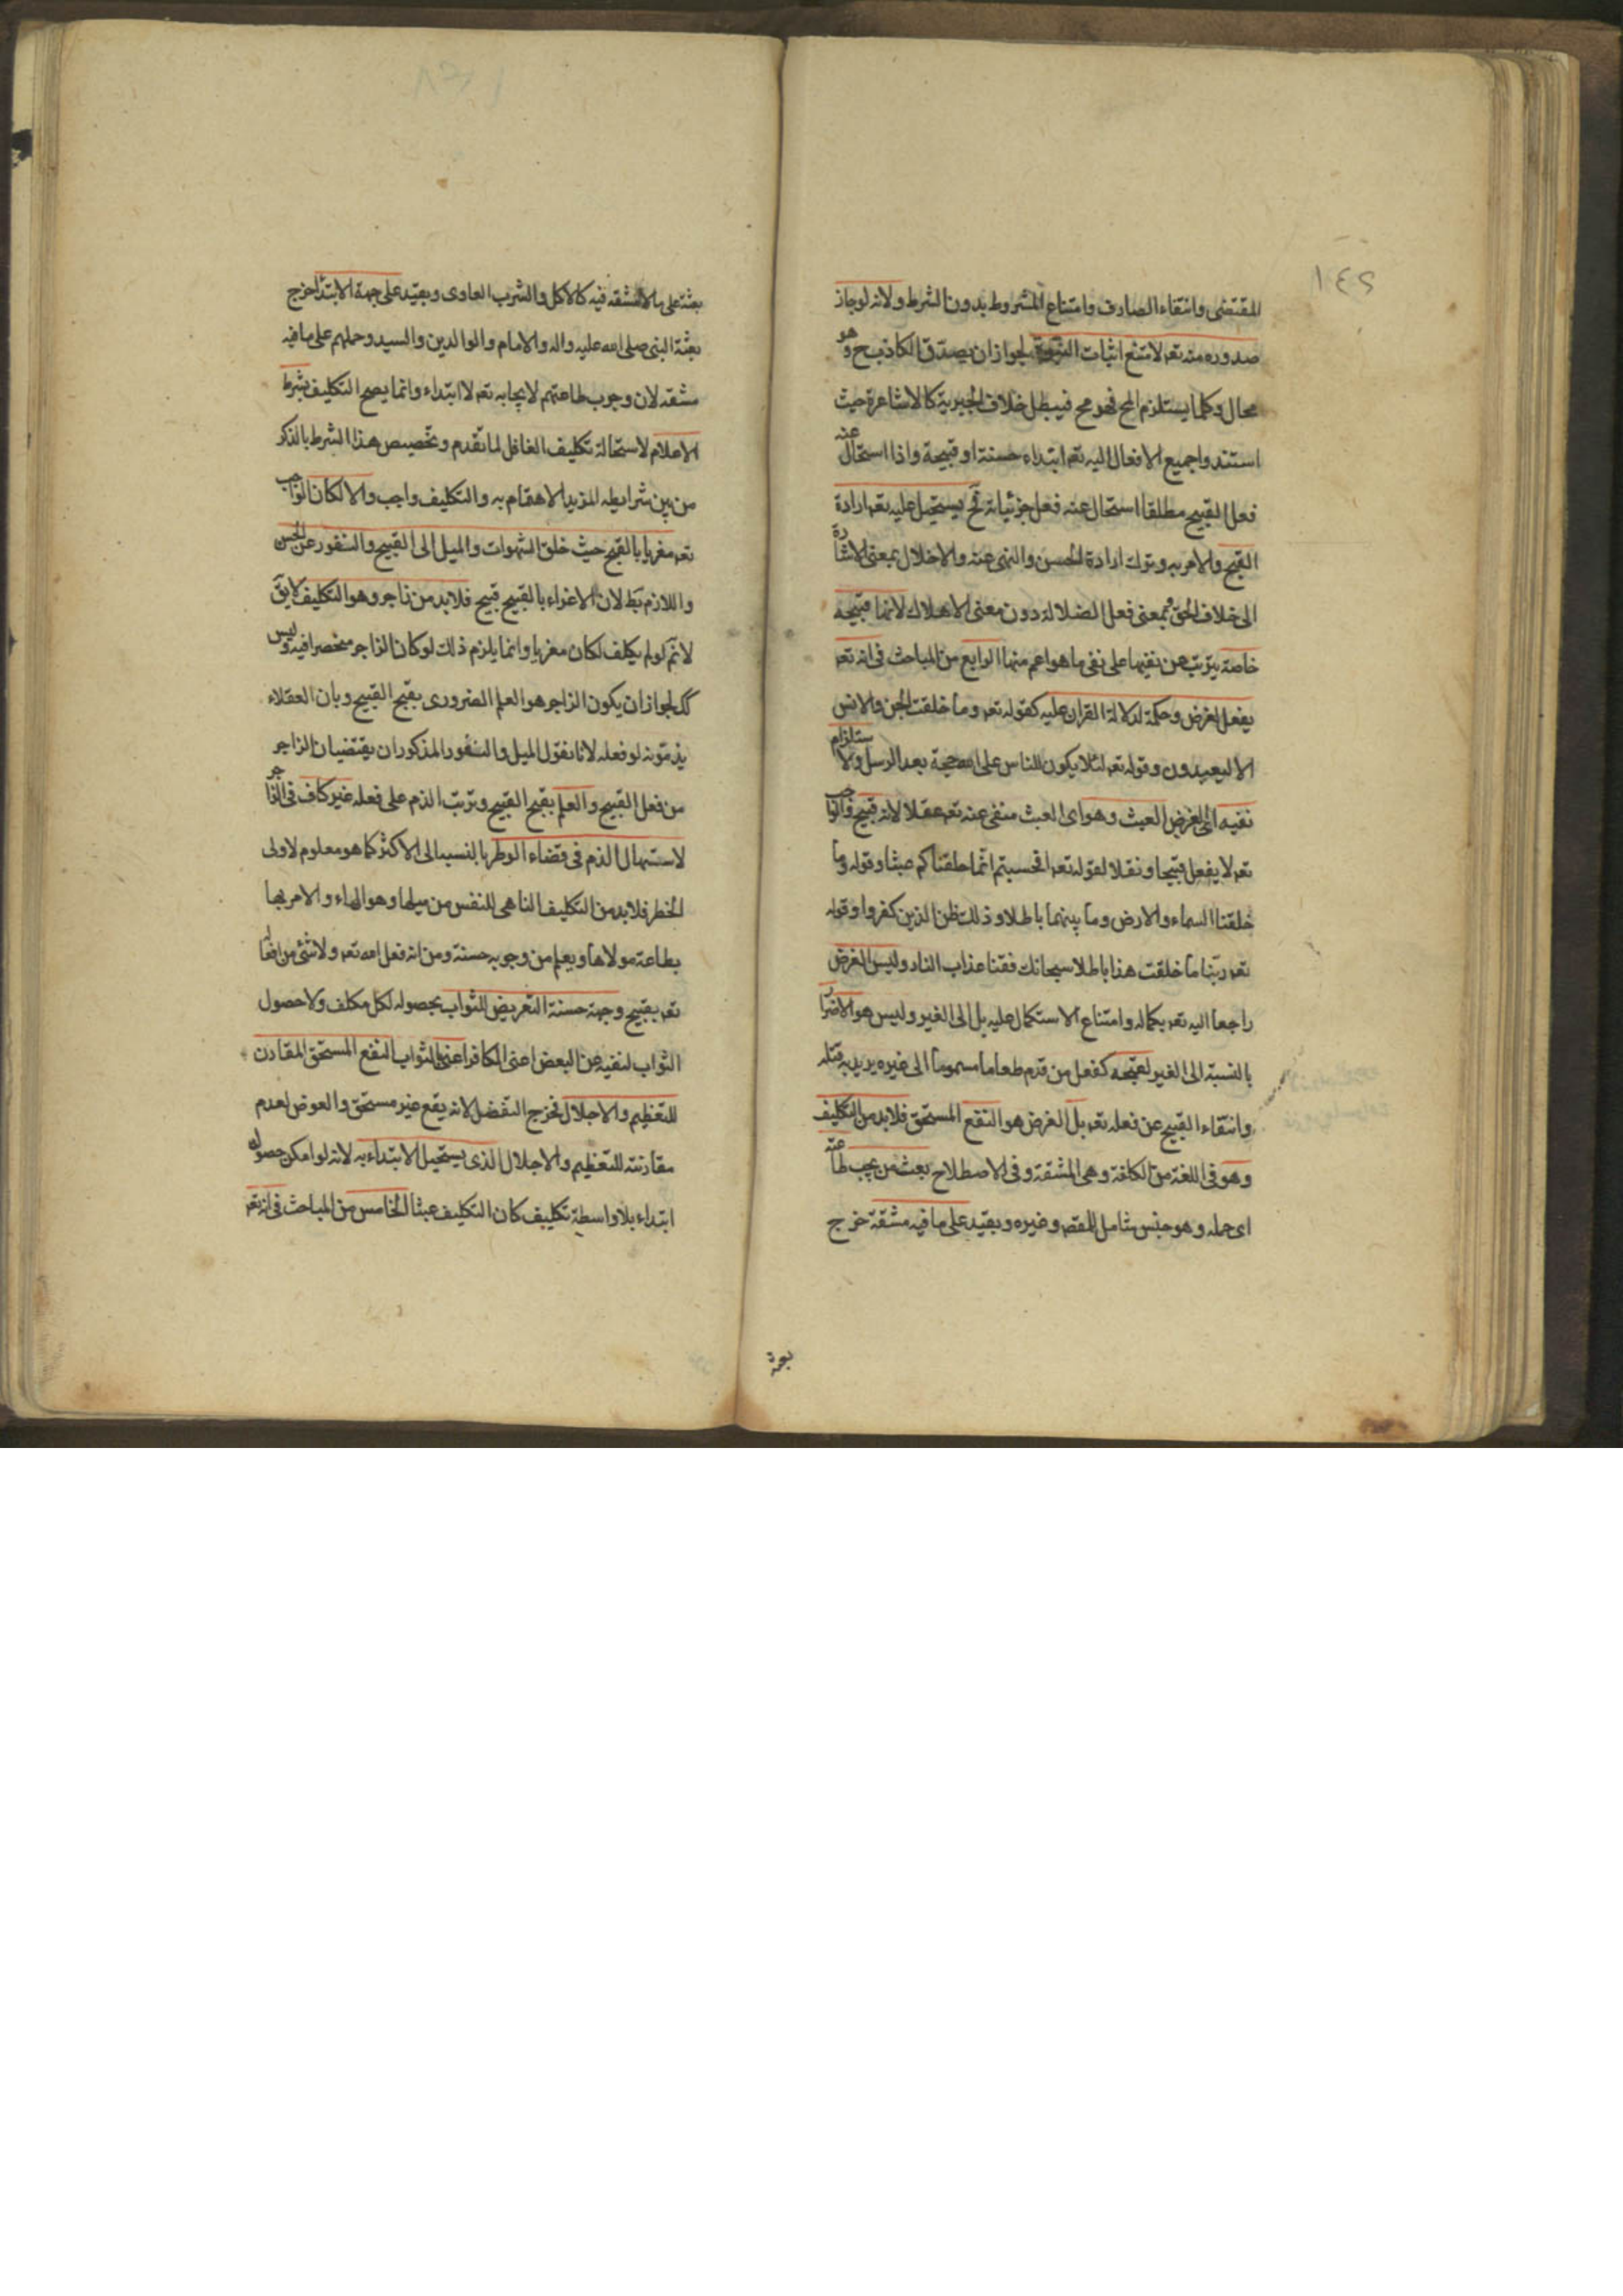 ١٤٢
المقتضى وانتفاء الصارف وامتناع المشروط بدون الشرط ولانه لو جاز
صدوره منه تعم لامتنع اثبات النبوة لجواز ان يصدق الكاذب ح وهو
محال وكلما يستلزم المح فهو مح فيبطل خلاف الجبرية كالاشاعرة حيث
استندوا جميع الافعال اليه تعم ابتداء حسنة او قبيحة واذا استحال عنه
فعل القبيح مطلقا استحال عنه فعل جزئياته فح يستحيل عليه تعم ارادة
القبيح والامر به وترك ارادة الحسن والنهى عنه والاخلال بمعنى الاشارة
الى خلاف الحق وبمعنى فعل الضلالة دون معنى الاهلاك لانها قبيحة
خاصة يترتب من نفيها على نفى ما هو اعم منها الرابع من المباحث فى انه تعم
يفعل لغرض وحكمة لدلالة القران عليه كقوله تعم وما خلقت الجن والانس
الا ليعبدون وقوله تعم لئلا يكون للناس على الله حجة بعد الرسل ولاستلزام
نفيه اى الغرض العبث وهو اى العبث منفى عنه تعم عقلا لانه قبيح والواجب
تعم لا يفعل قبيحا ونقلا لقوله تعم افحسبتم انما خلقناكم عبثا وقوله وما
خلقنا السماء والارض وما بينهما باطلا وذلك ظن الذين كفروا وقوله
تعم ربنا ما خلقت هذا باطلا سبحانك فقنا عذاب النار وليس الغرض
راجعا اليه تعم بكماله وامتناع الاستكمال عليه بل الى الغير وليس هو الاضرار
بالنسبة الى الغير لقبحه كفعل من قدم طعاما مسموما الى غيره يريد به قتله
وانتفاء القبيح عن فعله تعم بل الغرض هو النفع المستحق فلابد من التكليف
وهو فى اللغة من الكلفة وهى المشقة وفى الاصطلاح بعث من يجب طاعته
اى حمله وهو جنس شامل للمقصد وغيره وبقيد على ما فيه مشقة خرج
بعثة
بعثه على ما لا مشقه فيه كالاكل والشرب العادى وبقيد على جهة الابتداء خرج
بعثة النبى صلى الله عليه واله والامام والوالدين والسيد وحملهم على ما فيه
مشقه لان وجوب طاعتهم لايجابه تعم لا ابتداء وانما يصح التكليف بشرط
الاعلام لاستحالة تكليف الغافل لما تقدم وتخصيص هذا الشرط بالذكر
من بين شرايطه لمزيد الاهتمام به والتكليف واجب والا لكان الواجب
تعم مغريا بالقبيح حيث خلق الشهوات والميل الى القبيح والنفور عن الحسن
واللازم بط لان الاغراء بالقبيح قبيح فلابد من زاجر وهو التكليف لا يق
لا نم لو لم يكلف لكان مغريا وانما يلزم ذلك لو كان الزاجر منحصرا فيه وليس
كك لجواز ان يكون الزاجر هو العلم الضرورى بقبح القبيح وبان العقلاء
يذمونه لو فعله لانا نقول الميل والنفور المذكوران يقتضيان الزاجر
من فعل القبيح والعلم بقبح القبيح وترتب الذم على فعله غير كاف فى الزاجر
لاستسهال الذم فى قضاء الوطر بالنسبه الى الاكثر كما هو معلوم لاولى
الخطر فلابد من التكليف الناهى للنفس من ميلها وهوائها والامر بها
بطاعة مولاها ويعلم من وجوبه حسنة ومن انه فعل الله تعم ولا شئ من افعاله
تعم بقبيح وجهة حسنة التعريض للثواب بحصوله لكل مكلف ولا حصول
الثواب لنفيه عن البعض اعنى الكافر اعنى بالثواب النفع المستحق المقارن
للتعظيم والاجلال فخرج التفضل لانه يقع غير مستحق والعوض لعدم
مقارنته للتعظيم والاجلال الذى يستحيل الابتداء به لانه لو امكن حصوله
ابتداء بلا واسطة تكليف كان التكليف عبثا الخامس من المباحث فى انه تعم